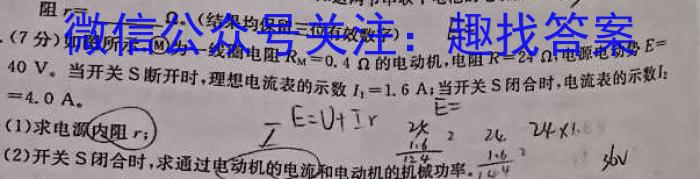 阻 r= Ω. (结果均保留三位有效数字)
微信公众号关注：趣找答案
(7分)如图所示, Ⓜ为一线圈电阻 R_M=0.4 Ω的电动机,电阻 R=24 Ω,电源电动势 E=
40 V。当开关S断开时,理想电流表的示数 I₁=1.6 A;当开关S闭合时,电流表的示数I₂
=4.0 A。
(1)求电源内阻 r;
E=U+Ir
E=
I
(2)开关S闭合时,求通过电动机的电流和电动机的机械功率。
24
1.6
2
24
24×1.6
36V